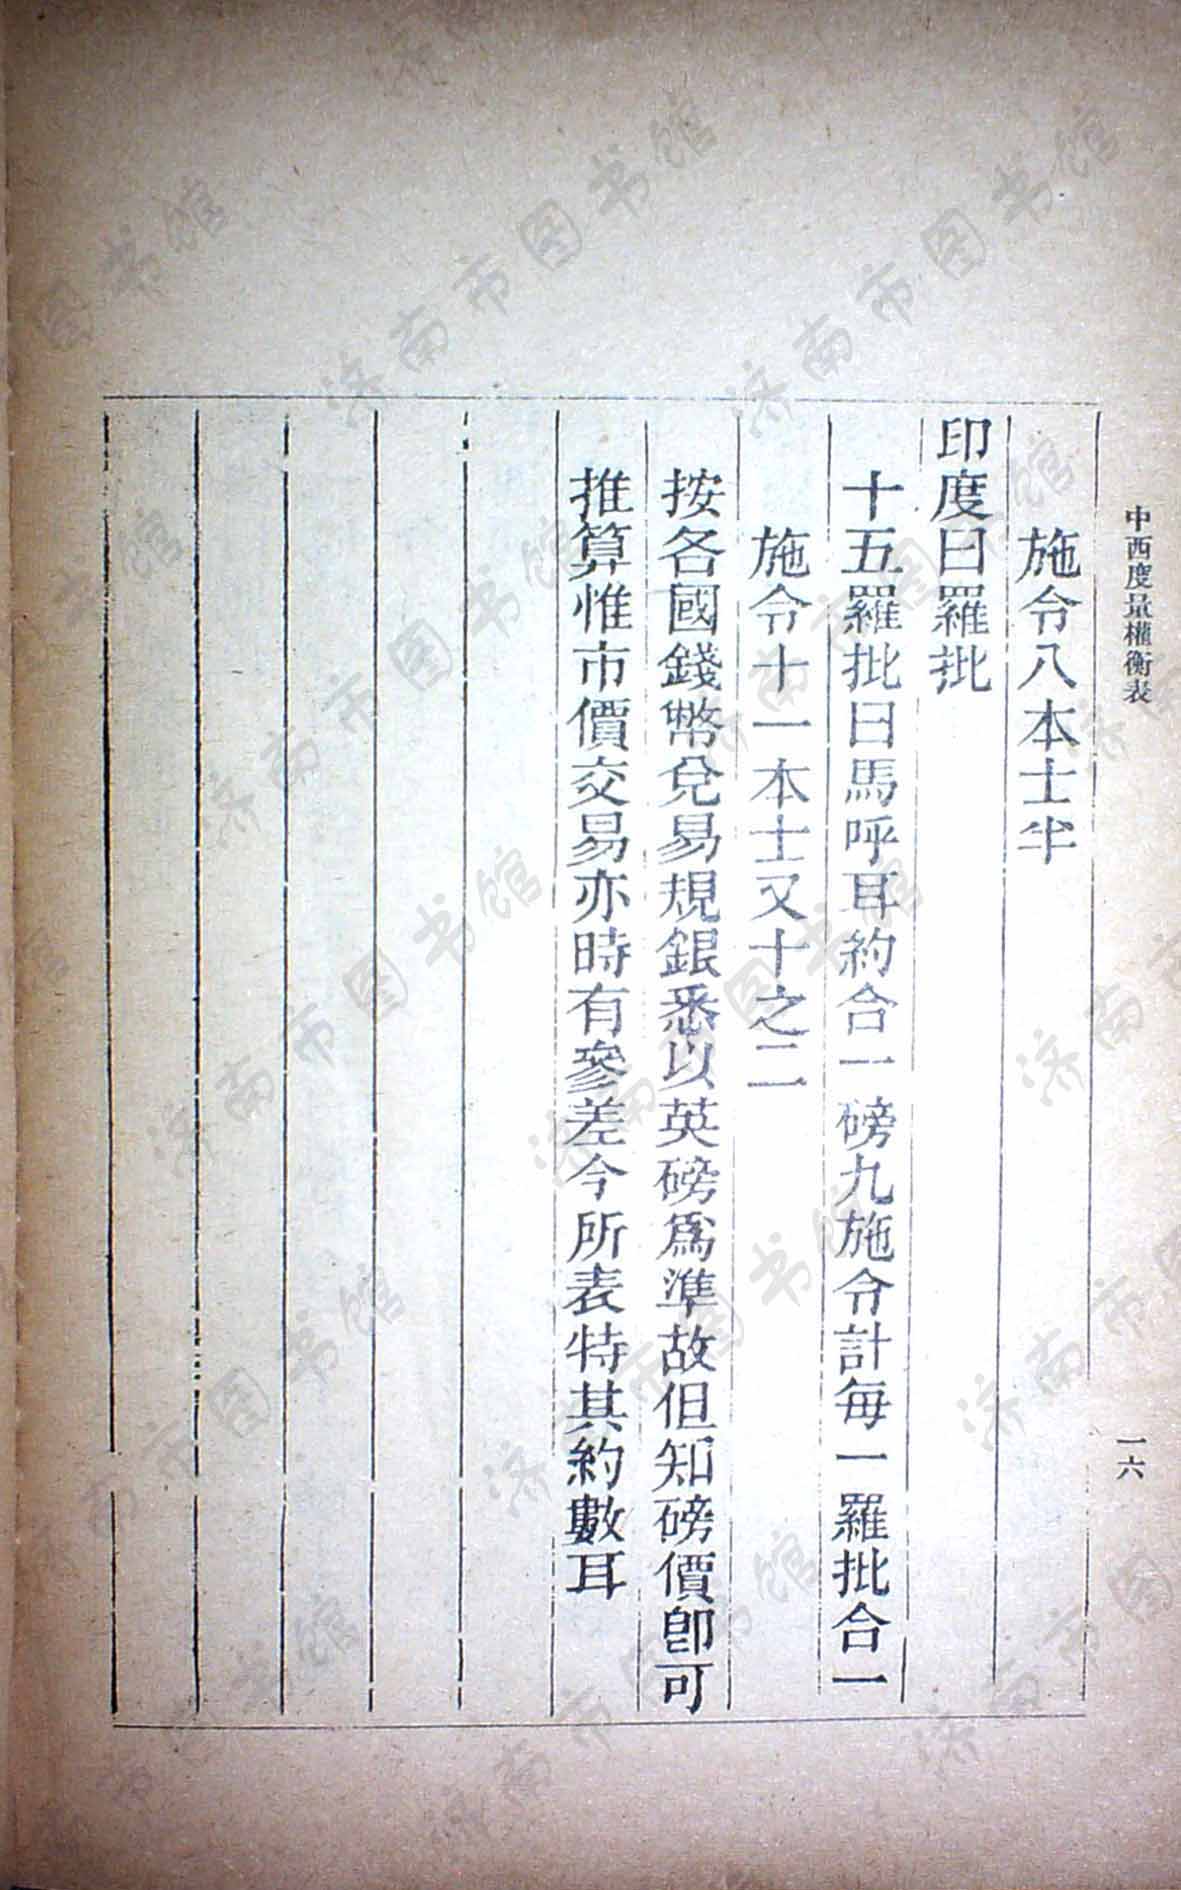 中西度量權衡表
一六
施令八本士半
印度曰羅批
十五羅批曰馬呼耳約合一磅九施令計每一羅批合一
施令十一本士又十之二
按各國錢幣兌易規銀悉以英磅爲準故但知磅價卽可
推算惟市價交易亦時有參差今所表特其約數耳
济南市图书馆